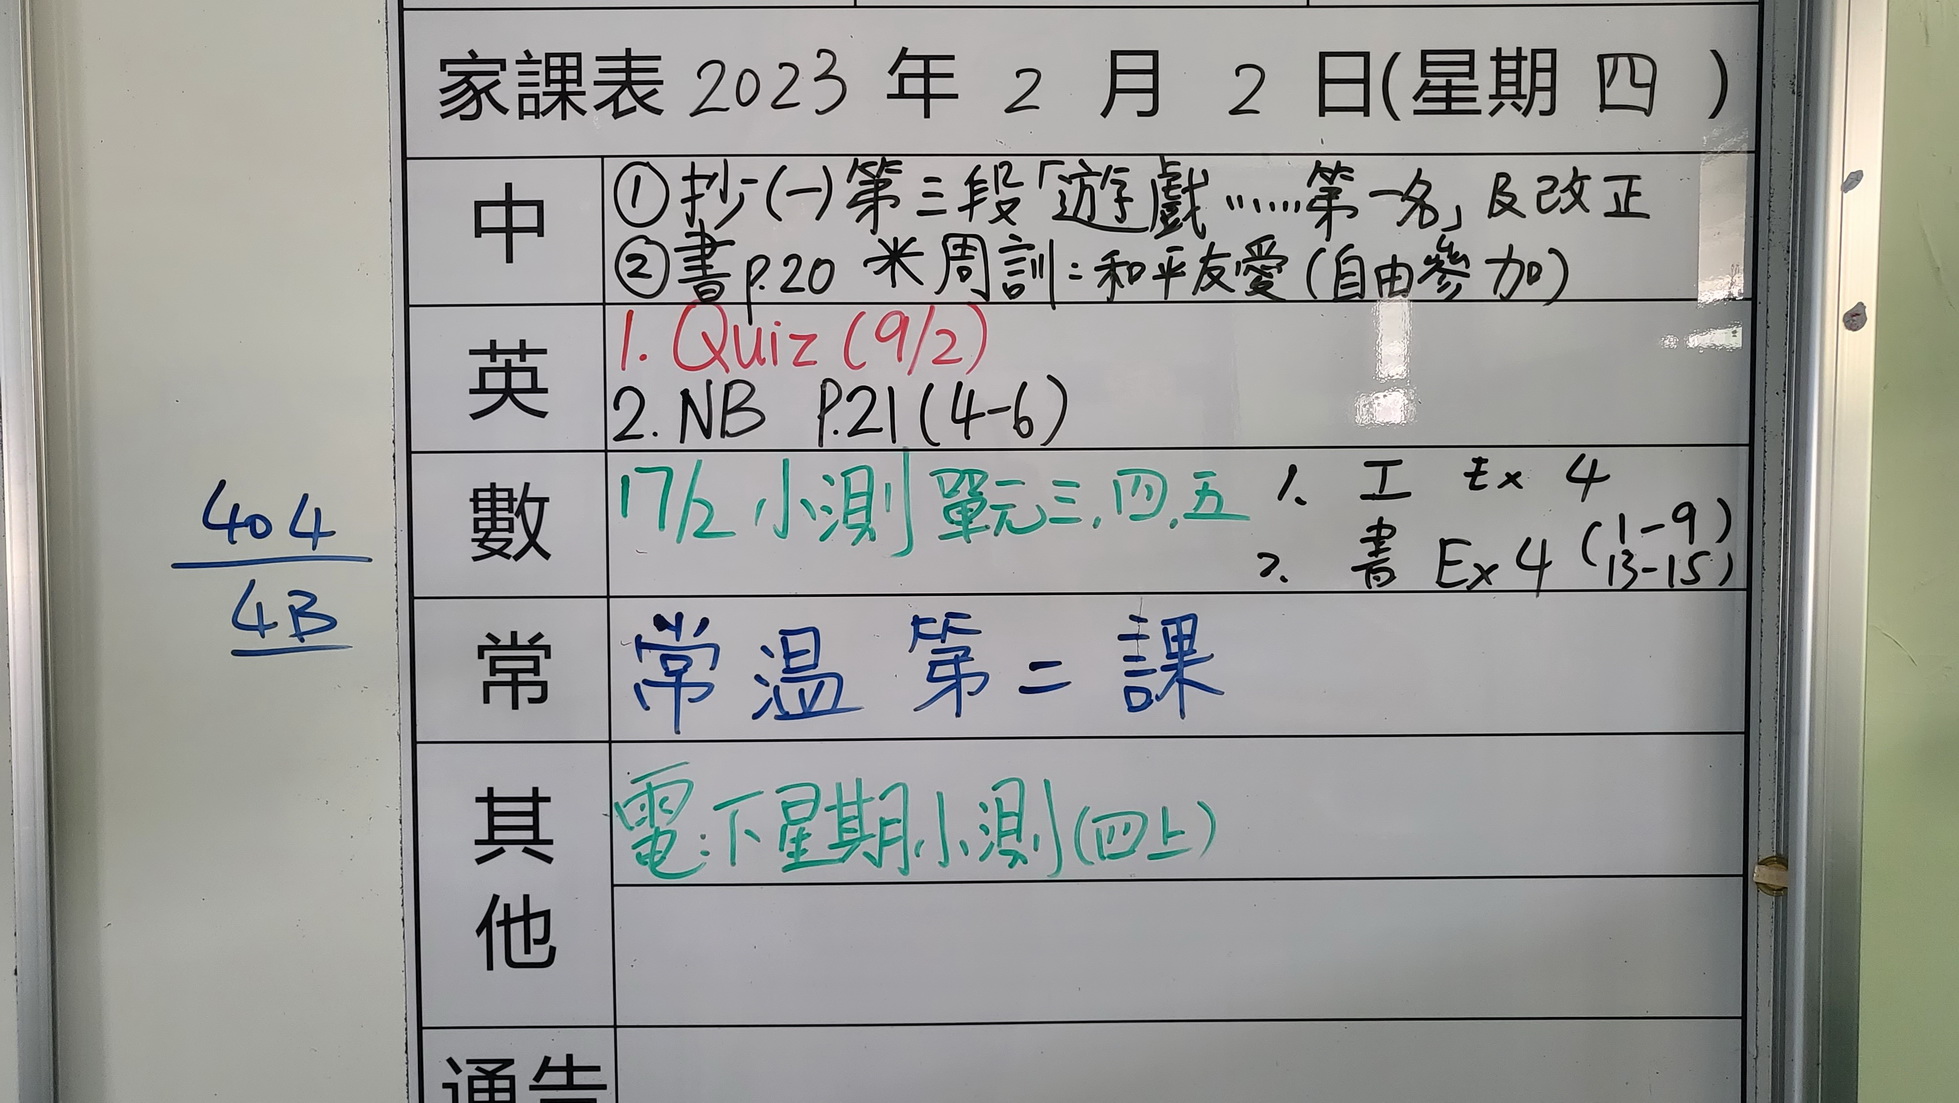 家課表 2023 年 2 月 2 日(星期 四 )
中
①抄(一)第三段「遊戲……第一名」及改正
②書p.20 米周訓:和平友愛(自由參加)
英
1. Quiz (9/2)
2. NB P.21 (4-6)
數
17/2 小測 單元三,四,五
1. 工 Ex 4
2. 書 Ex 4 (1-9)
13-15)
常
常 温 第 二 課
其他
電:下星期小測(四上)
通告
404
4B